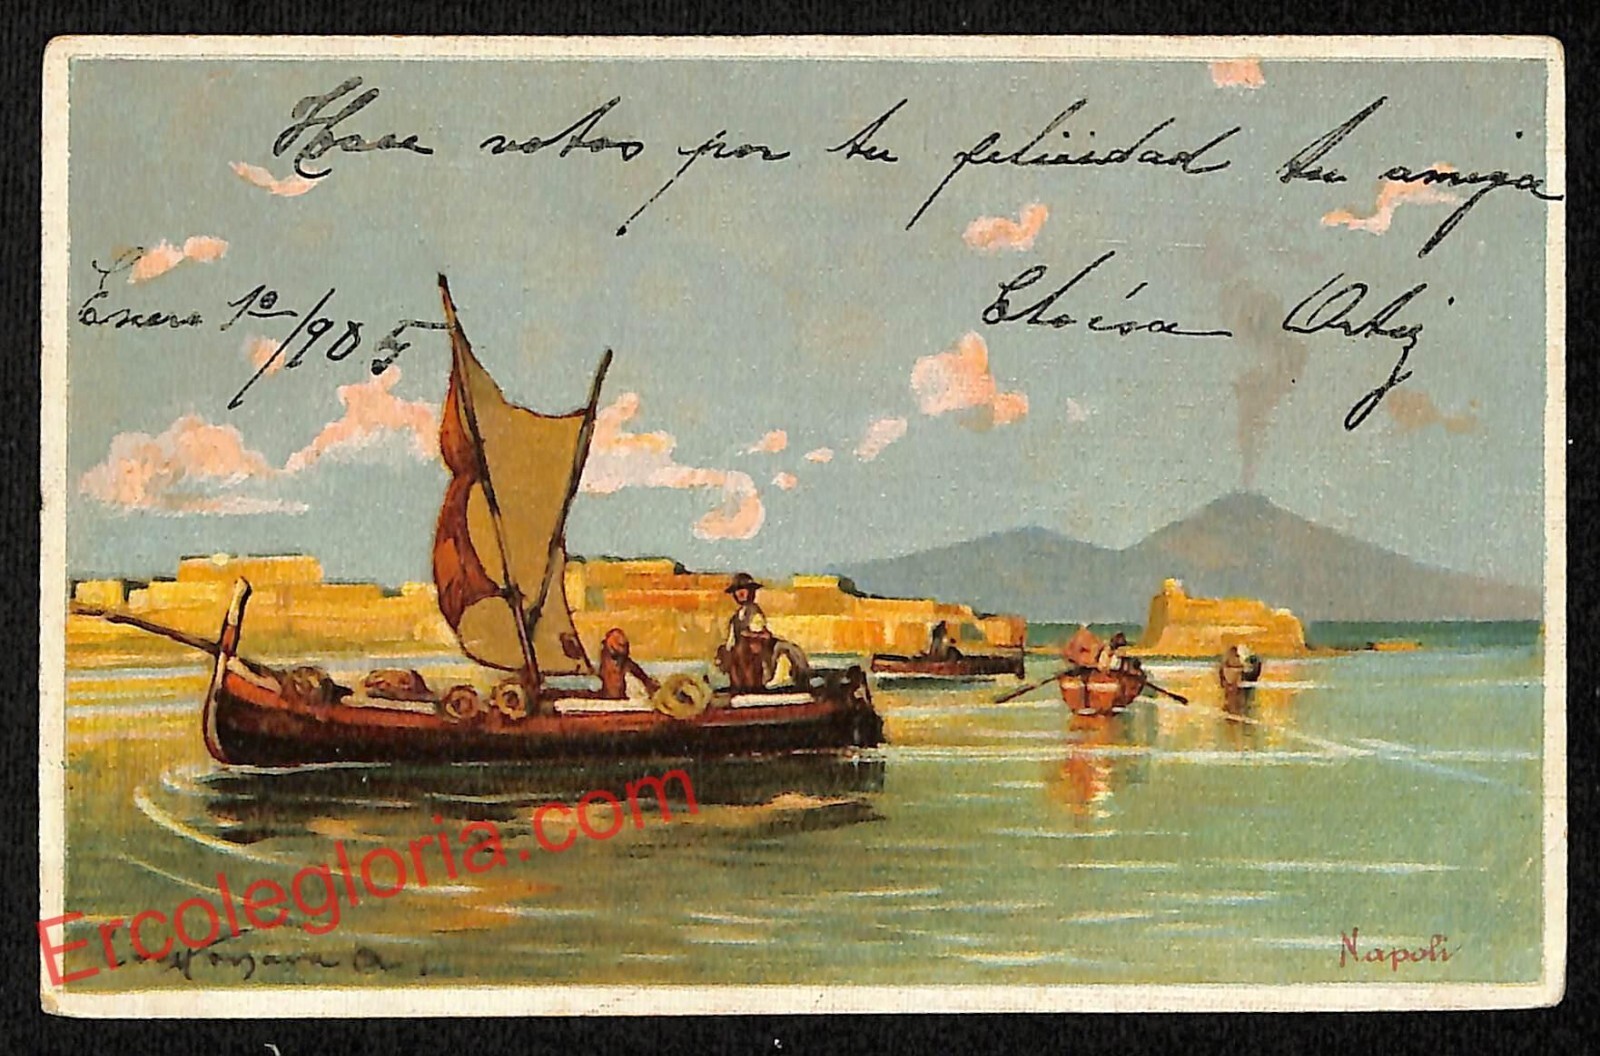 Hace votos por tu felicidad tu amiga
Eloísa Ortiz
Enero 1º/905
Ercolegloria.com
Napoli